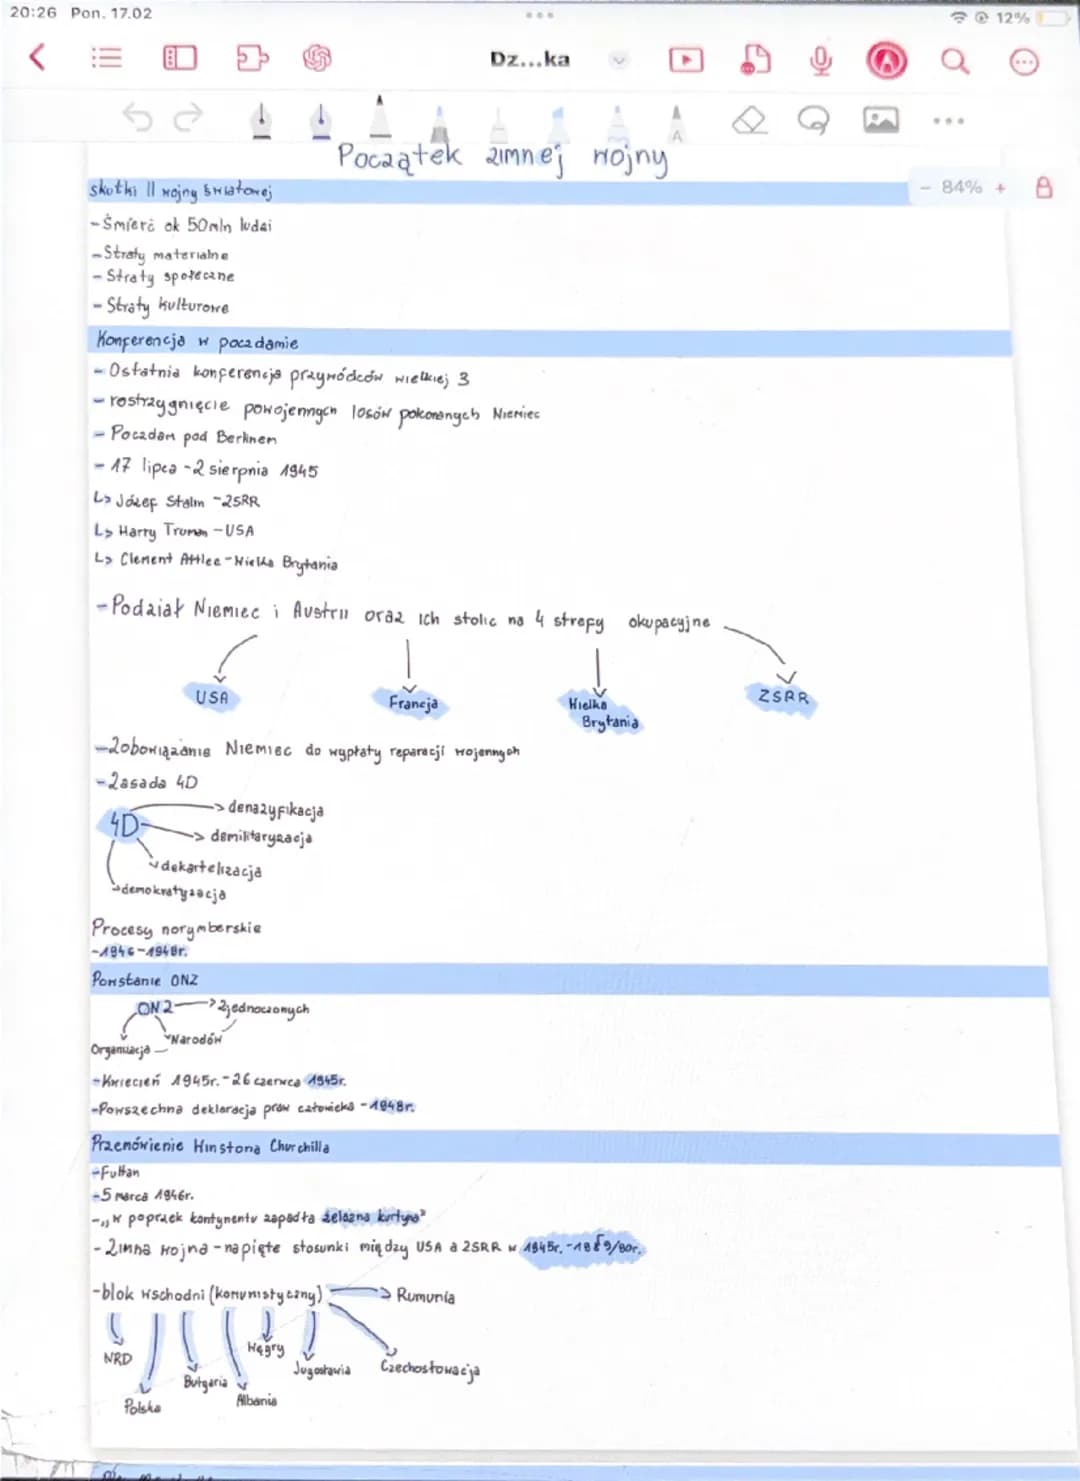 20:26 Pon. 17.02
12%
Dz...ka
84%
Początek zimnej wojny
skutki II wojny światowej
-Śmierć ok 50mln ludzi
-Straty materialne
-Straty społeczne
-Straty kulturowe
Konferencja w poczdamie
-Ostatnia konferencja przywódców wielkiej 3
-rostrzygnięcie powojennych losów pokonanych Niemiec
-Poczdam pod Berlinem
-17 lipca -2 sierpnia 1945
↳ Józef Stalin -ZSRR
↳ Harry Truman -USA
↳ Clement Attlee -Wielka Brytania
-Podział Niemiec i Austrii oraz ich stolic na 4 strefy okupacyjne
USA Francja Wielka Brytania ZSRR
-Zobowiązanie Niemiec do wypłaty reparacji wojennych
-Zasada 4D
4D
denazyfikacja
demilitaryzacja
dekartelizacja
demokratyzacja
Procesy norymberskie
-1946-1948r.
Powstanie ONZ
ONZ Zjednoczonych
Narodów
Organizacja
-Kwiecień 1945r. -26 czerwca 1945r.
-Powszechna deklaracja praw człowieka -1948r.
Przemówienie Winstona Churchilla
-Fultan
-5 marca 1946r.
-„w poprzek kontynentu zapadła żelazna kurtyna"
-Zimna wojna -napięte stosunki między USA a ZSRR w 1945r. -1989/90r.
-blok wschodni (komunistyczny) Rumunia
NRD Węgry Jugosławia Czechosłowacja
Bułgaria
Polska Albania